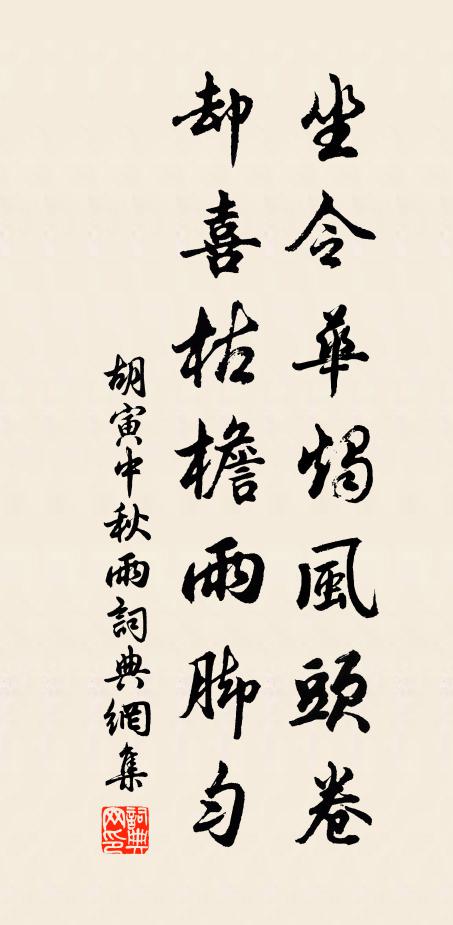 坐令華燭風頭卷
却喜枯檐雨脚勻
胡寅中秋雨詞典網集
詞典网印